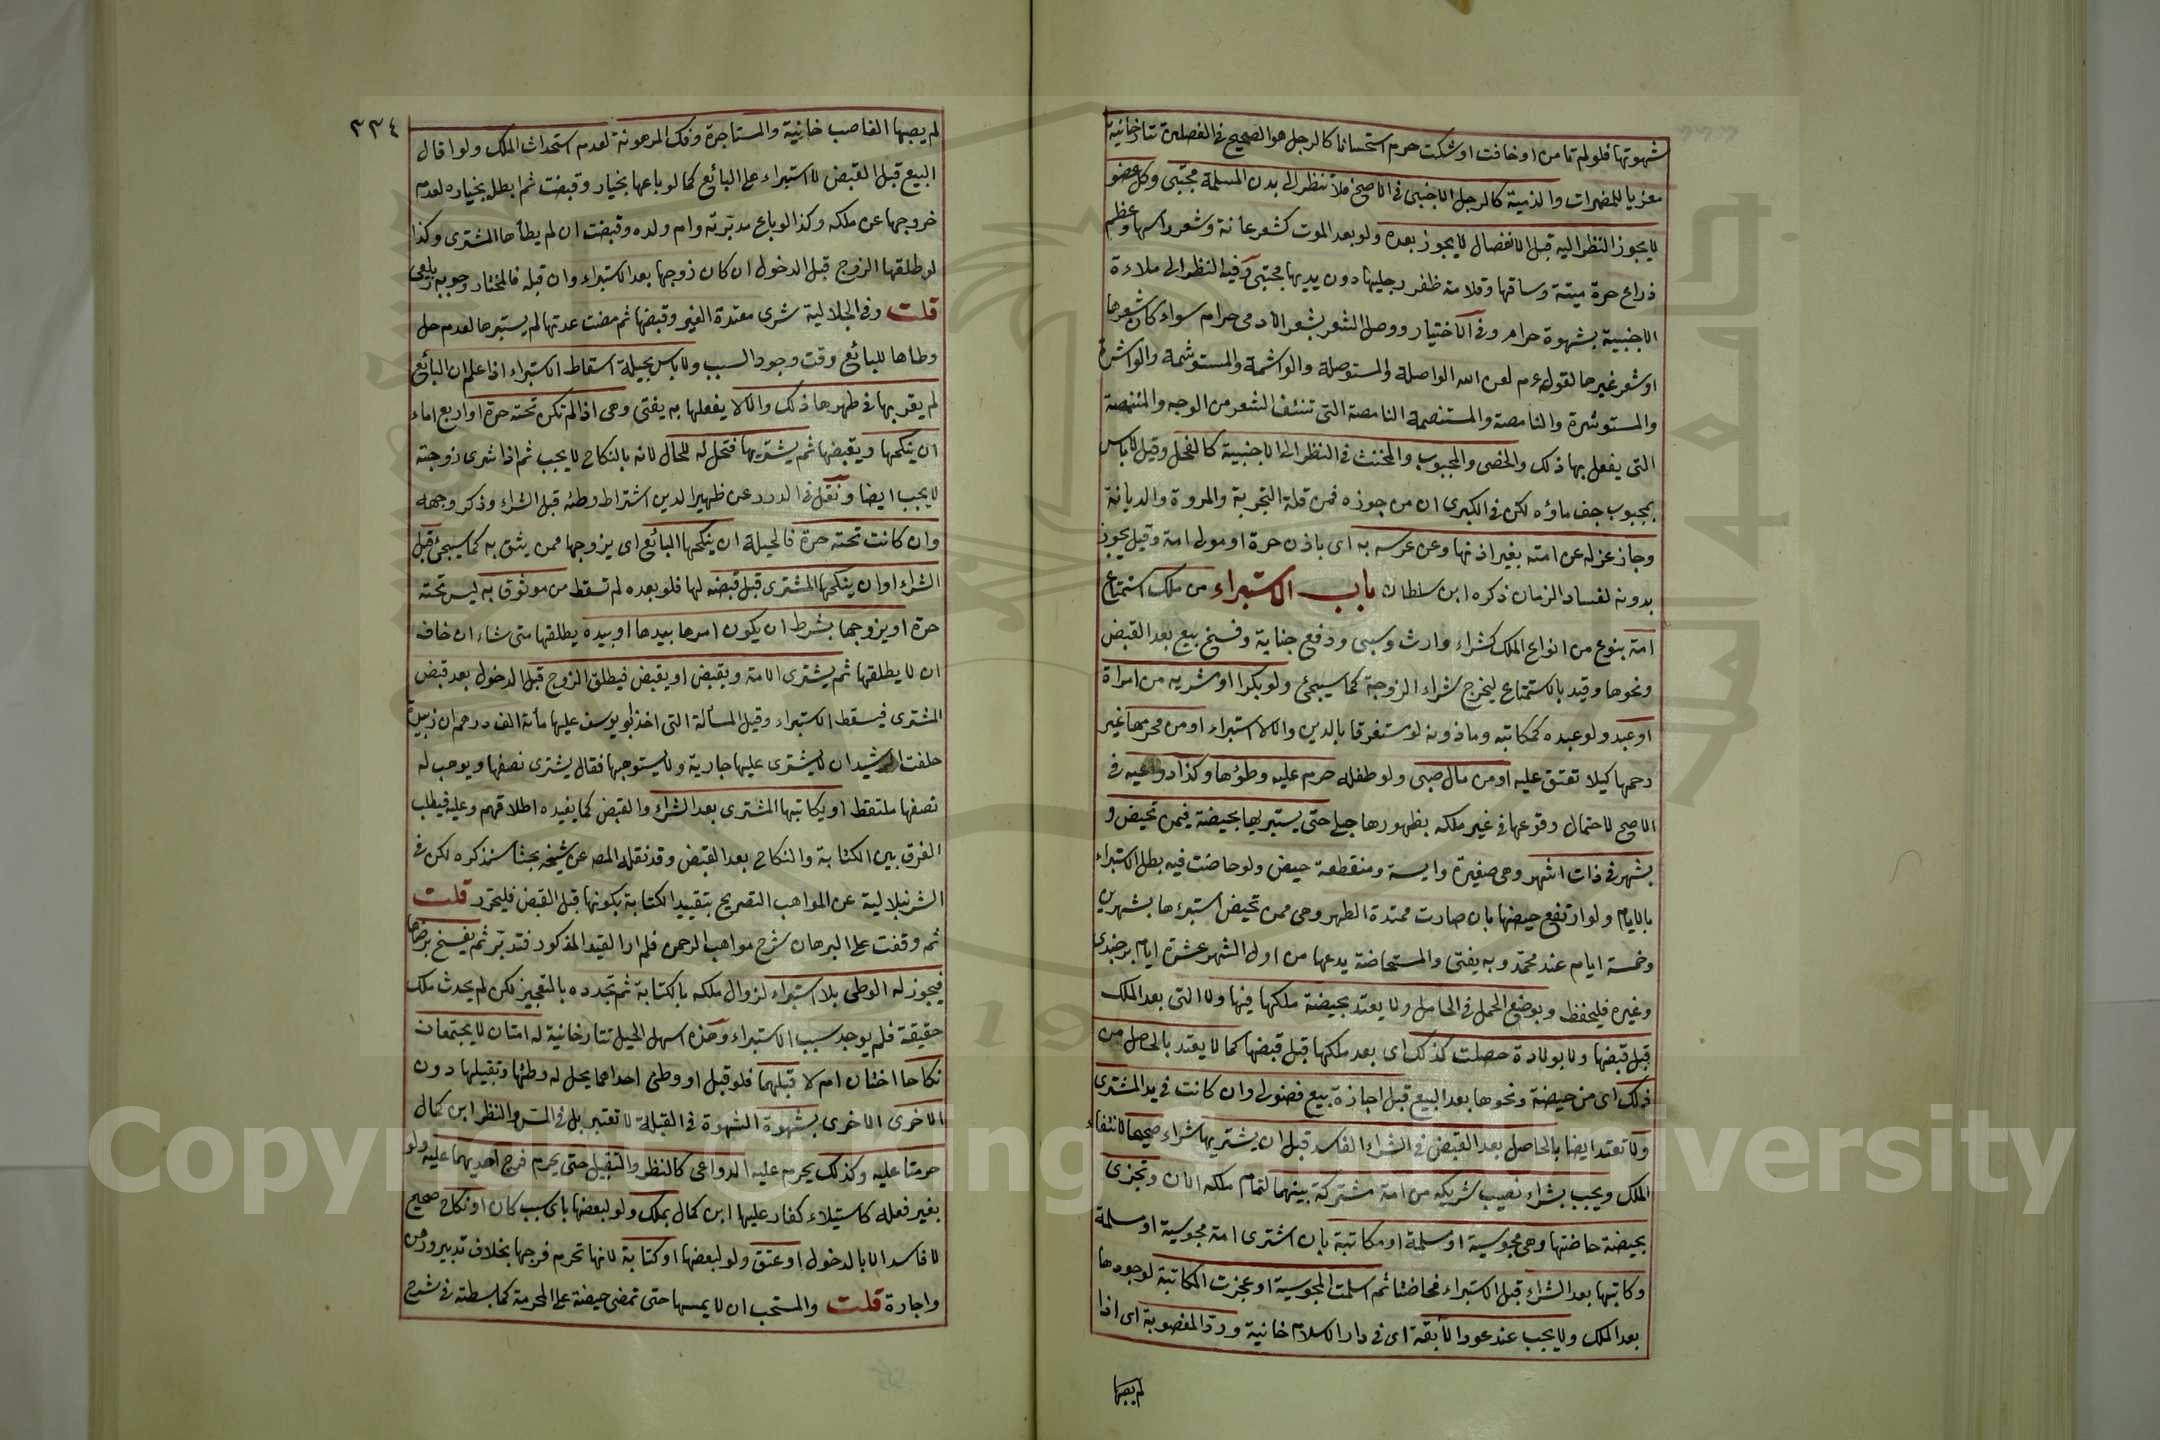 شهوتها فلو لم تامن او خافت او شكت حرم استحسانا كالرجل هو الصحيح في الفصلين تتارخانية
معزيا للمضمرات والذمية كالرجل الاجنبي في الاصح فلا تنظر الى بدن المسلمة مجتبى وكل عضو
لا يجوز النظر اليه قبل الانفصال لا يجوز بعده ولو بعد الموت كشعر عانة وشعر راسها وعظم
ذراع حرة ميتة وساقها وقلامة ظفر رجليها دون يديها مجتبى وفيه النظر الى ملاءة
الاجنبية بشهوة حرام وفي الاختيار ووصل الشعر بشعر الادمي حرام سواء كان شعرها
او شعر غيرها لقوله عم لعن الله الواصلة والمستوصلة والواشمة والمستوشمة والواشرة
والمستوشرة والنامصة والمتنمصة النامصة التي تنتف الشعر من الوجه والمتنمصة
التي يفعل بها ذلك والخصي والمجبوب والمخنث في النظر الى الاجنبية كالفحل وقيل لا باس
بمجبوب جف ماؤه لكن في الكبرى ان من جوزه فمن قلة التجربة والمروة والديانة
وجاز عزله عن امته بغير اذنها وعن عرسه به اي باذن حرة او مولى امة وقيل يجوز
بدونه لفساد الزمان ذكره ابن سلطان باب الاستبراء من ملك استمتاع
امة بنوع من انواع الملك كشراء وارث وسبي ودفع جناية وفسخ بيع بعد القبض
ونحوها وقيد بالاستمتاع ليخرج شراء الزوجة كما سيجئ ولو بكرا او شريه من امراة
او عبد ولو عبده كمكاتبه وماذونه لو مستغرقا بالدين والا لا استبراء او من محرمها غير
رحمها كيلا تعتق عليه او من مال صبي ولو طفله حرم عليه وطؤها وكذا دواعيه في
الاصح لاحتمال وقوعها في غير ملكه بظهورها حبلى حتى يستبريها بحيضة فيمن تحيض و
بشهر في ذات اشهر وهي صغيرة وايسة ومنقطعة حيض ولو حاضت فيه بطل الاستبراء
بالايام ولو ارتفع حيضها بان صارت ممتدة الطهر وهي ممن تحيض استبراها بشهرين
وخمسة ايام عند محمد وبه يفتى والمستحاضة يدعها من اول الشهر عشرة ايام برجندي
وغيره فليحفظ وبوضع الحمل في الحامل ولا يعتد بحيضة ملكها فيها ولا التي بعد الملك
قبل قبضها ولا بولادة حصلت كذلك اي بعد ملكها قبل قبضها كما لا يعتد بالحاصل من
ذلك اي من حيضة ونحوها بعد البيع قبل اجازة بيع فضولي وان كانت في يد المشتري
ولا تعتد ايضا بالحاصل بعد القبض في الشراء الفاسد قبل ان يشتريها شراء صحيحا لانتفاء
الملك ويجب بشراء نصيب شريكه من امة مشتركة بينهما لتمام ملكه الان وتجزى
بحيضة حاضتها وهي مجوسية او مسلمة او مكاتبة بان اشترى امة مجوسية او مسلمة
وكاتبها بعد الشراء قبل الاستبراء فحاضتا ثم اسلمت المجوسية او عجزت المكاتبة لوجودها
بعد الملك ولا يجب عند عود الآبقة اي في دار الاسلام خانية ورد المغصوبة اي اذا
لم يصبها
٣٣٤
لم يصبها الغاصب خانية والمستاجرة وفك المرهونة لعدم استحداث الملك ولو اقال
البيع قبل القبض لا استبراء على البائع كما لو باعها بخيار وقبضت ثم ابطل بخياره لعدم
خروجها عن ملكه وكذا لو باع مدبرته وام ولده وقبضت ان لم يطأها المشتري وكذا
لو طلقها الزوج قبل الدخول ان كان زوجها بعد الاستبراء وان قبله فالمختار وجوبه زيلعي
قلت وفي الجلالية شرى معتدة الغير وقبضها ثم مضت عدتها لم يستبرها لعدم حل
وطاها للبائع وقت وجود السبب ولا باس بحيلة اسقاط الاستبراء اذا علم ان البائع
لم يقربها في طهرها ذلك والا لا يفعلها به يفتى وهي اذا لم تكن تحته حرة او اربع اماء
ان ينكحها ويقبضها ثم يشتريها فتحل له للحال لانه بالنكاح لا يجب ثم اذا شرى زوجته
لا يجب ايضا ونقل في الدرر عن ظهير الدين اشتراط وطئه قبل الشراء وذكر وجهه
وان كانت تحته حرة فالحيلة ان ينكحها البائع اي يزوجها ممن يثق به كما سيجئ قبل
الشراء او ان ينكحها المشتري قبل قبضه لها فلو بعده لم تسقط من موثوق به ليس تحته
حرة او يزوجها بشرط ان يكون امرها بيدها او بيده يطلقها متى شاء ان خاف
ان لا يطلقها ثم يشتري الامة ويقبض او يقبض فيطلق الزوج قبل الدخول بعد قبض
المشتري فيسقط الاستبراء وقيل المسألة التي اخذ ابو يوسف عليها مأة الف درهم ان زبيدة
حلفت الرشيد ان لا يشتري عليها جارية ولا يستوهبها فقال يشتري نصفها ويوهب له
نصفها ملتقط او يكاتبها المشتري بعد الشراء والقبض كما يفيده اطلاقهم وعليه فيطلب
الفرق بين الكتابة والنكاح بعد القبض وقد نقله المصـ عن شيخه بحثا سنذكره لكن في
الشرنبلالية عن المواهب التصريح بتقييد الكتابة بكونها قبل القبض فليحرر قلت
ثم وقفت على البرهان شرح مواهب الرحمن فلم ار القيد المذكور فتدبر ثم يفسخ برضاها
فيجوز له الوطي بلا استبراء لزوال ملكه بالكتابة ثم تجدده بالتعجيز لكن لم يحدث ملك
حقيقة فلم يوجد سبب الاستبراء وهذه اسهل الحيل تتارخانية له امتان لا يجتمعان
نكاحا اختان ام لا قبلهما فلو قبل او وطئ احداهما يحل له وطئها وتقبيلها دون
الاخرى الاخرى بشهوة الشهوة في القبلة لا تعتبر بل في المس والنظر ابن كمال
حرمتا عليه وكذلك يحرم عليه الدواعي كالنظر والتقبيل حتى يحرم فرج احديهما عليه ولو
بغير فعله كاستيلاء كفار عليها ابن كمال بملك ولو لبعضها باي سبب كان او نكاح صحيح
لا فاسد الا بالدخول او عتق ولو لبعضها او كتابة لانها تحرم فرجها بخلاف تدبير ورهن
واجارة قلت والمستحب ان لا يمسها حتى تمضي حيضة على المحرمة كما بسطته في شرح
Copyright © King Saud University